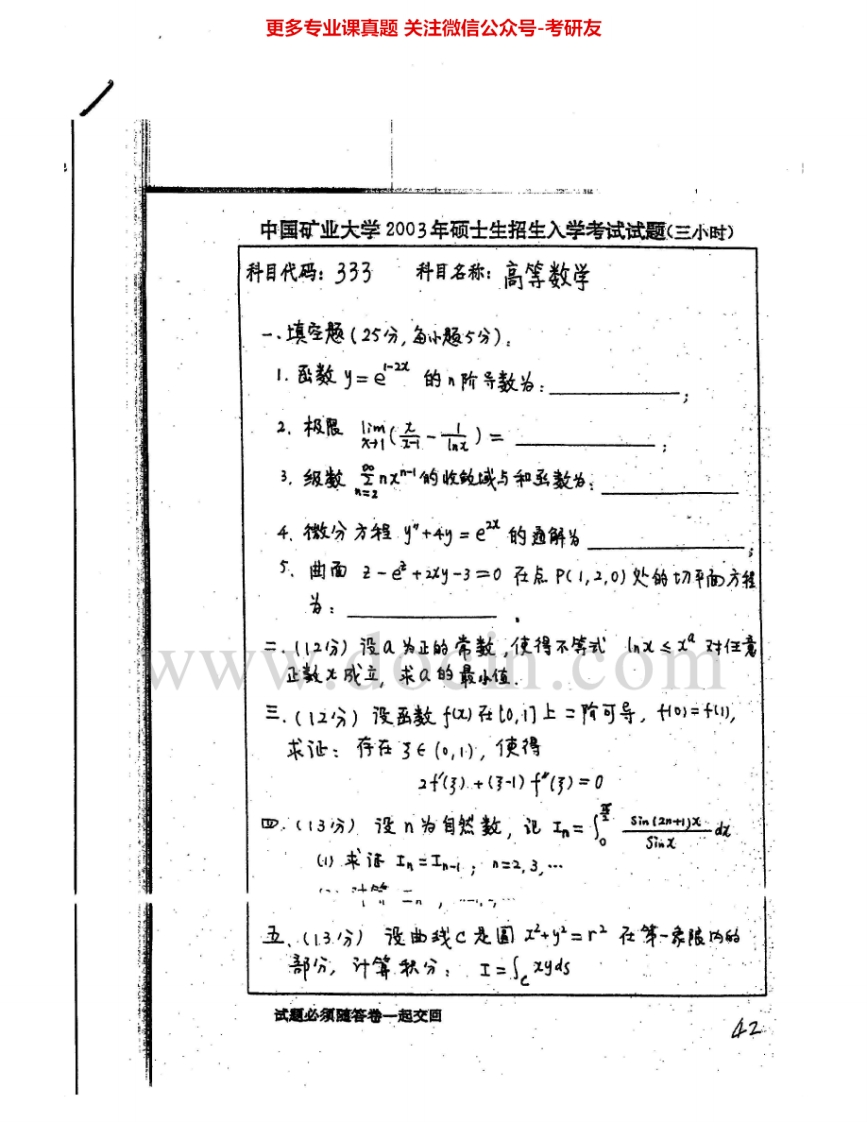 更多专业课真题 关注微信公众号-考研友
中国矿业大学2003年硕士生招生入学考试试题(三小时)
科目代码：333 科目名称：高等数学
一、填空题(25分,每小题5分)：
1. 函数 y=e^{1-2x} 的n阶导数为：________；
2. 极限 lim_{x→1}(x/(x-1) - 1/lnx) = ________；
3. 级数 ∑_{n=2}^{∞} nx^{n-1} 的收敛域与和函数为：________
4. 微分方程 y''+4y=e^{2x} 的通解为________；
5. 曲面 z-e^z+2xy-3=0 在点P(1,2,0)处的切平面方程
为：________.
二、(12分) 设a为正的常数,使得不等式 lnx≤x^a 对任意
正数x成立, 求a的最小值.
三、(12分) 设函数f(x)在[0,1]上二阶可导, f(0)=f(1),
求证：存在ξ∈(0,1), 使得
2f'(ξ)+(ξ-1)f''(ξ)=0
四、(13分) 设n为自然数, 记 I_n=∫_0^{π/2} sin(2n+1)x/sinx dx
(1) 求证 I_n=I_{n-1}; n=2,3,…
计算
五、(13分) 设曲线C是圆 x²+y²=r² 在第一象限内的
部分, 计算积分： I=∫_C xyds
试题必须随答卷一起交回
42
www.docin.com